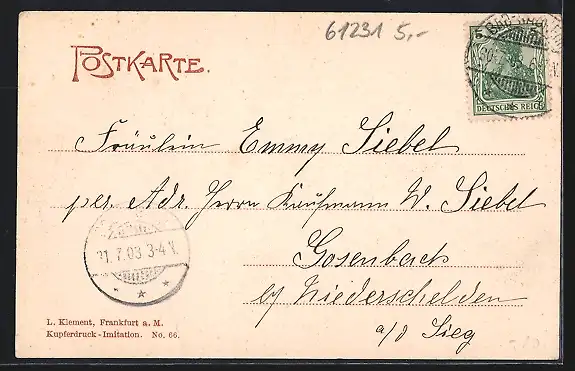 61231 5,-
POSTKARTE.
5
DEUTSCHES REICH
Fräulein Emmy Siebel
per. Adr. Herrn Kaufmann W. Siebel
21.7.03 3-4 N.
Gosenbach
b/ Niederschelden
a/d Sieg
L. Klement, Frankfurt a. M.
Kupferdruck-Imitation. No. 66.